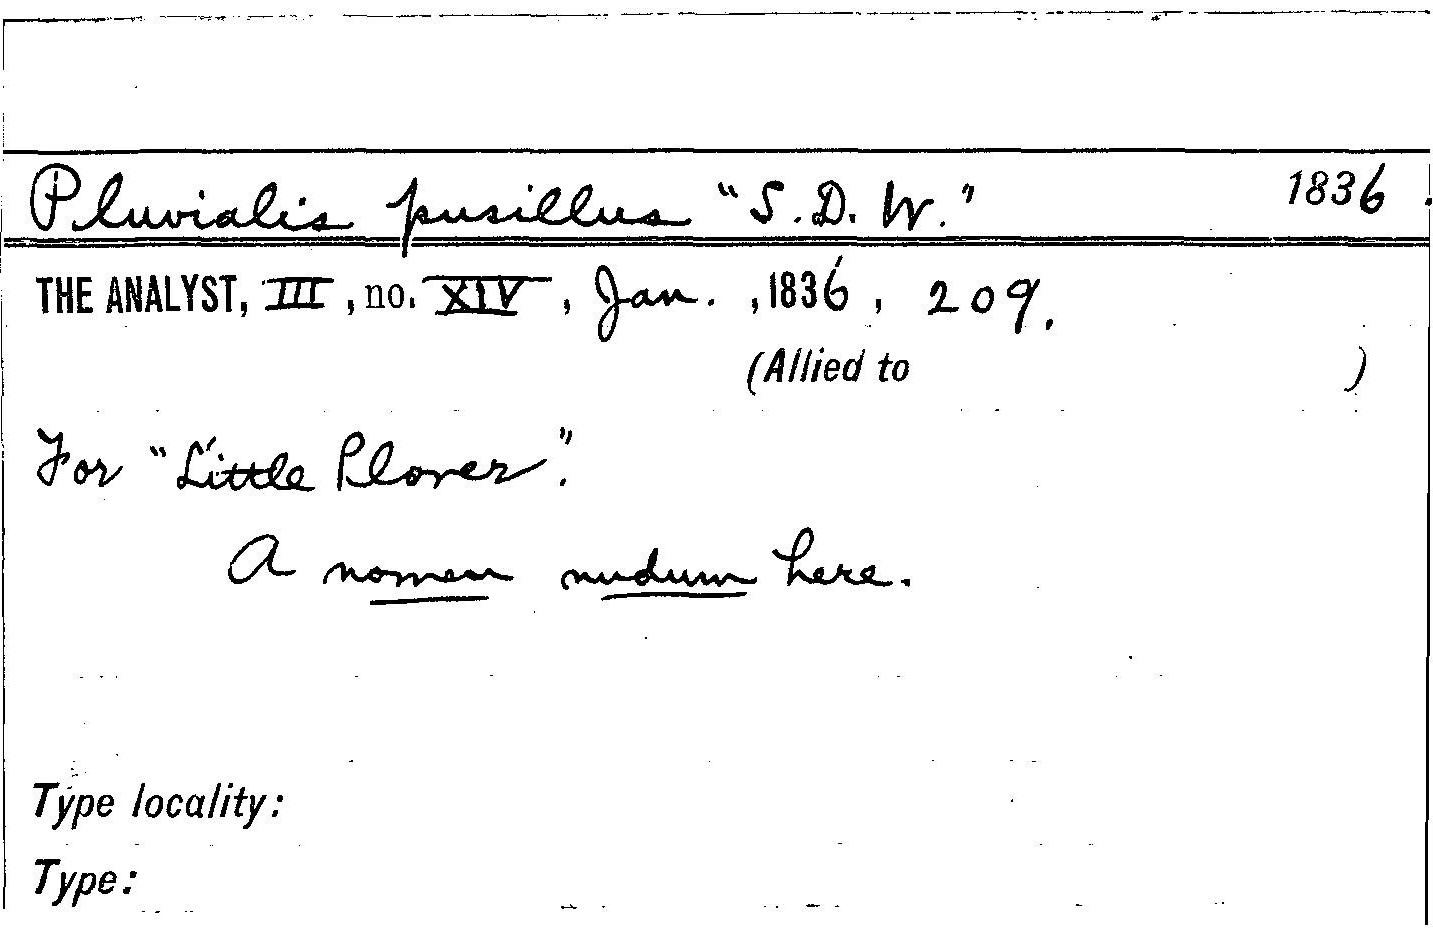 Pluvialis pusillus "S. D. W." 1836.
THE ANALYST, III, no. XIV, Jan., 1836, 209.
(Allied to )
For "Little Plover".
A nomen nudum here.
Type locality:
Type: